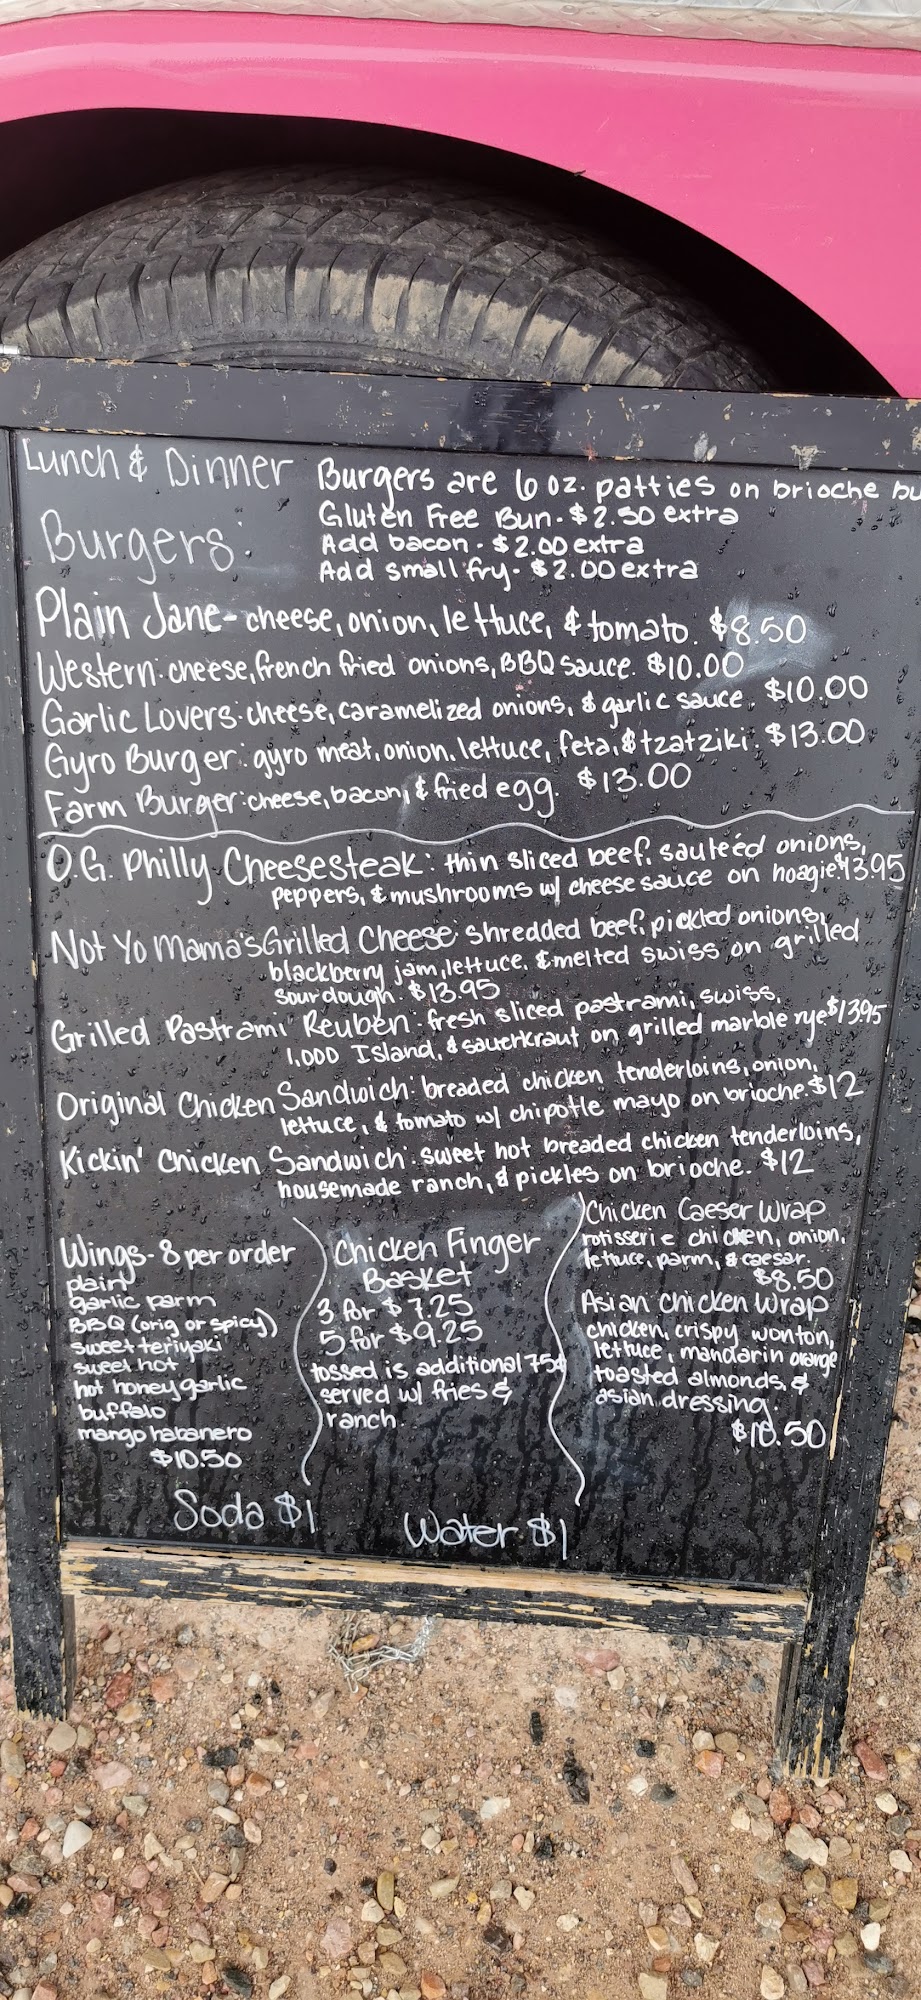 Lunch & Dinner
Burgers are 6 oz. patties on brioche bu
Gluten Free Bun - $2.50 extra
Add bacon - $2.00 extra
Add small fry - $2.00 extra
Burgers:
Plain Jane - cheese, onion, lettuce, & tomato. $8.50
Western: cheese, french fried onions, BBQ sauce. $10.00
Garlic Lovers: cheese, caramelized onions, & garlic sauce. $10.00
Gyro Burger: gyro meat, onion, lettuce, feta, & tzatziki. $13.00
Farm Burger: cheese, bacon, & fried egg. $13.00
O.G. Philly Cheesesteak: thin sliced beef, sauteéd onions,
peppers, & mushrooms w/ cheese sauce on hoagie $13.95
Not Yo Mama's Grilled Cheese: shredded beef, pickled onions,
blackberry jam, lettuce, & melted swiss on grilled
sourdough. $13.95
Grilled Pastrami Reuben: fresh sliced pastrami, swiss,
1,000 Island, & sauerkraut on grilled marble rye $13.95
Original Chicken Sandwich: breaded chicken tenderloins, onion,
lettuce, & tomato w/ chipotle mayo on brioche. $12
Kickin' Chicken Sandwich: sweet hot breaded chicken tenderloins,
housemade ranch, & pickles on brioche. $12
Wings - 8 per order
plain
garlic parm
BBQ (orig or spicy)
sweet teriyaki
sweet hot
hot honey garlic
buffalo
mango habanero
$10.50
Chicken Finger
Basket
3 for $7.25
5 for $9.25
tossed is additional 75¢
served w/ fries &
ranch.
Chicken Caeser Wrap
rotisserie chicken, onion,
lettuce, parm, & caesar.
$8.50
Asian Chicken Wrap
chicken, crispy wonton,
lettuce, mandarin orange
toasted almonds, &
asian dressing.
$10.50
Soda $1
Water $1